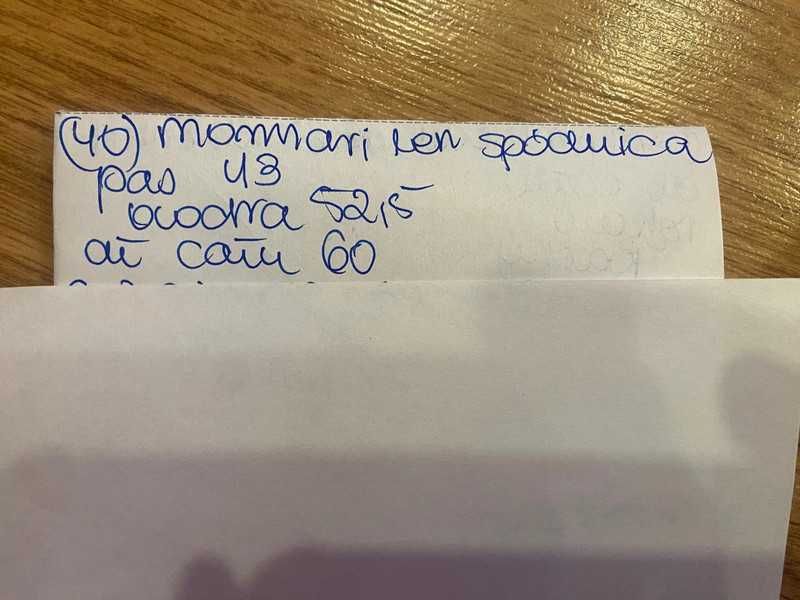 (40) Monnari len spódnica
pas 43
biodra 52,5
dł całk 60